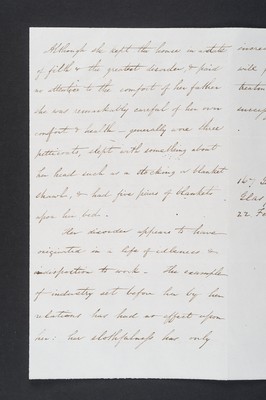 Although she kept the house in a state
of filth & the greatest disorder, & paid
no attention to the comfort of her father
she was remarkably careful of her own
comfort & health – generally wore three
petticoats, slept with something about
her head such as a stocking or blanket
shawl, & had five pieces of blankets
upon her bed.
Her disorder appears to have
originated in a life of idleness &
indisposition to work – The example
of industry set before her by her
relations has had no effect upon
her: her slothfulness has only
increa
will
treatm
167
Glas
22